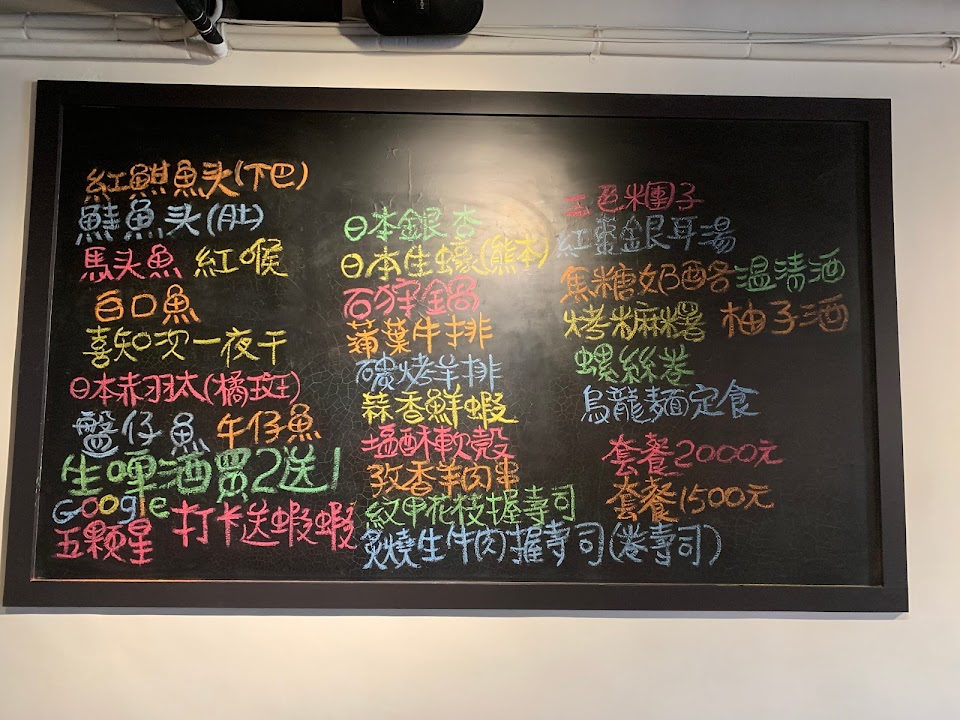 紅魽魚头(下巴)
鮭魚头(肚)
馬头魚 紅喉
白口魚
喜知次一夜干
日本赤羽太(橘斑)
盤仔魚 午仔魚
生啤酒買2送1
Google
五顆星 打卡送蝦蝦
日本銀杏
日本生蠔(熊本)
石狩鍋
蒲葉牛排
碳烤羊排
蒜香鮮蝦
塩酥軟殼
孜香羊肉串
紋甲花枝握壽司
炙燒生牛肉握壽司(卷壽司)
三色糰子
紅棗銀耳湯
焦糖奶酪 温清酒
烤麻糬 柚子酒
螺絲卷
烏龍麵定食
套餐2000元
套餐1500元